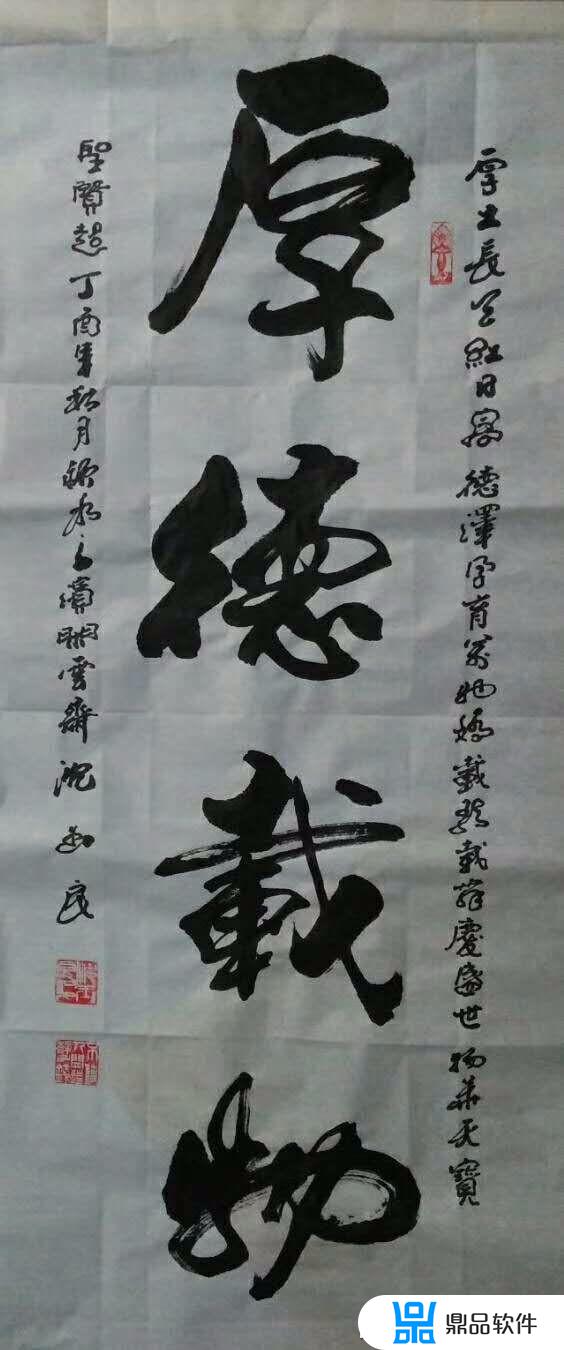 厚德載物
厚土長 紅日 德澤孕育萬物嬌 載歌載舞慶盛世 物華天寶
聖賢超 丁酉年秋月 雲齋 沈 良
鼎品软件